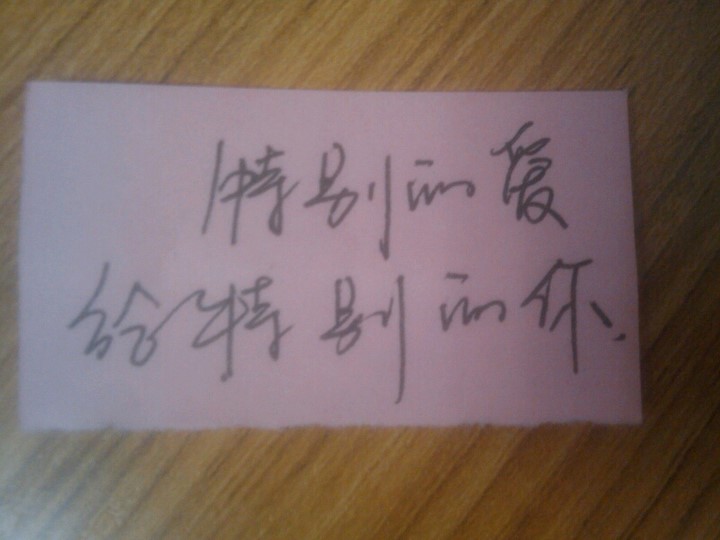 特别的爱
给特别的你.